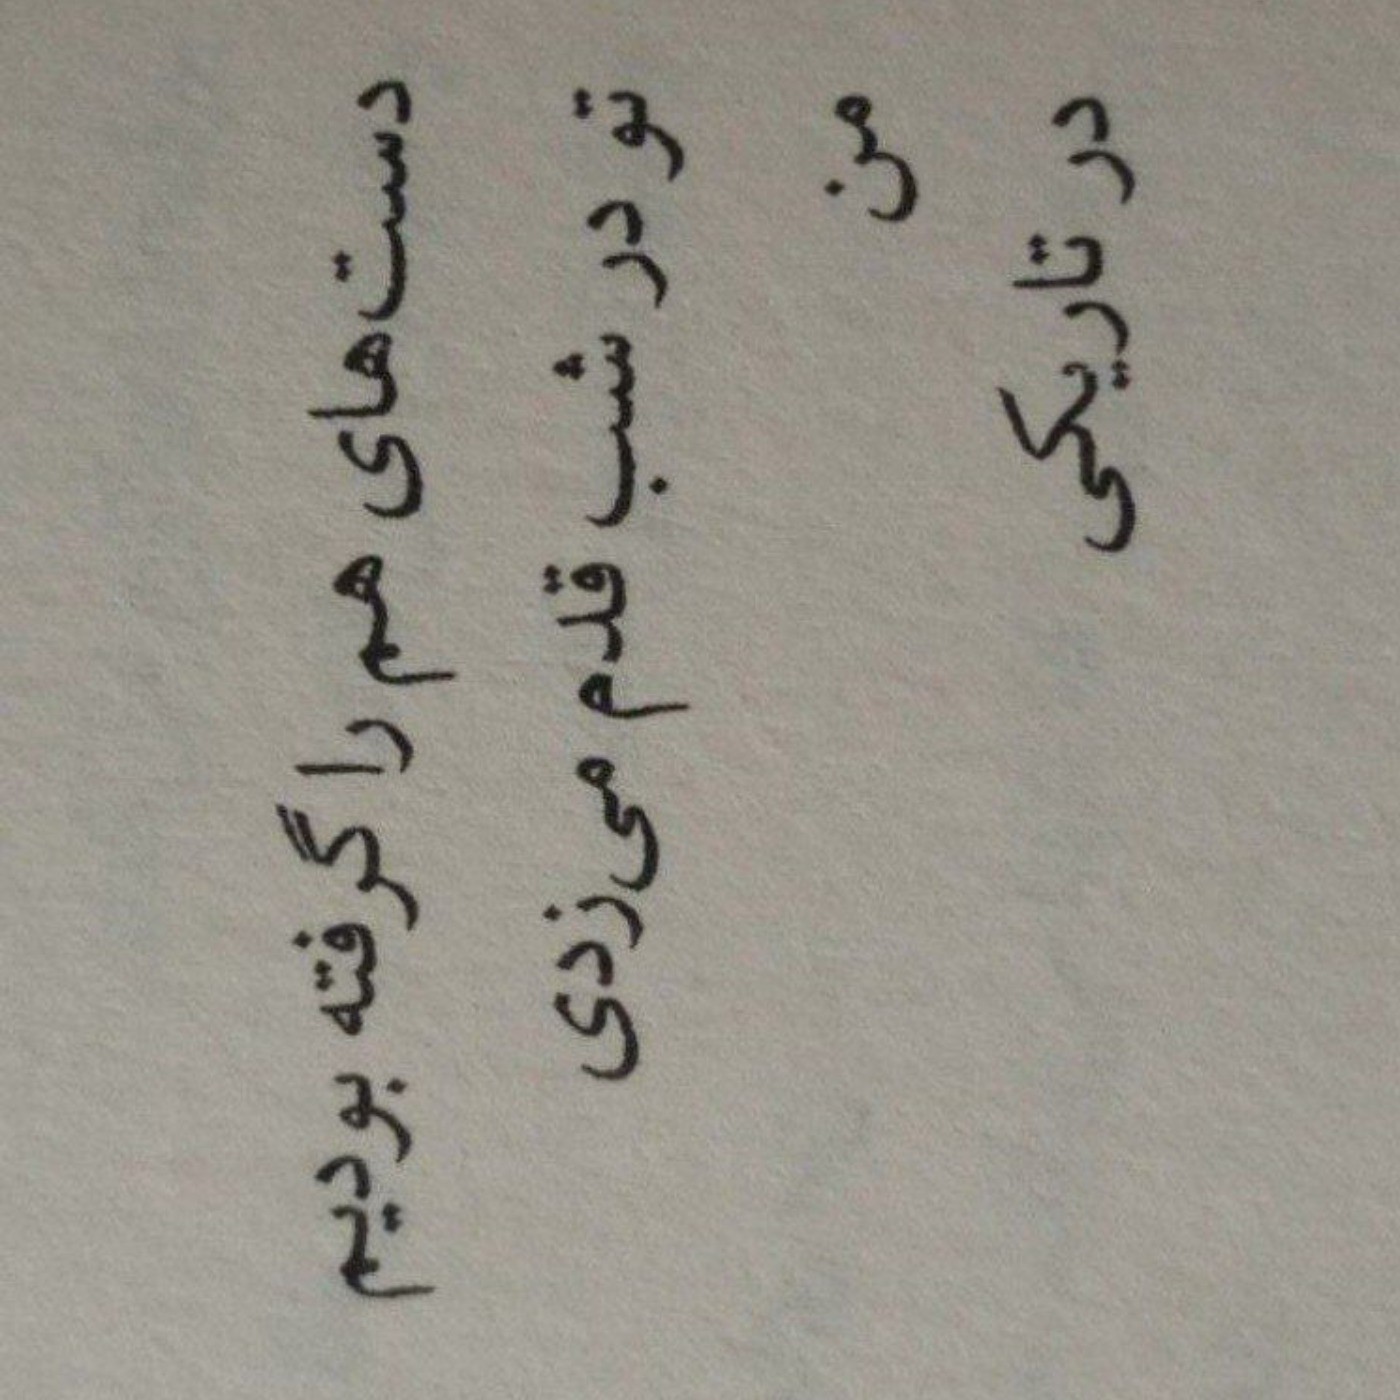 دست‌های هم را گرفته بودیم
تو در شب قدم می‌زدی
من
در تاریکی